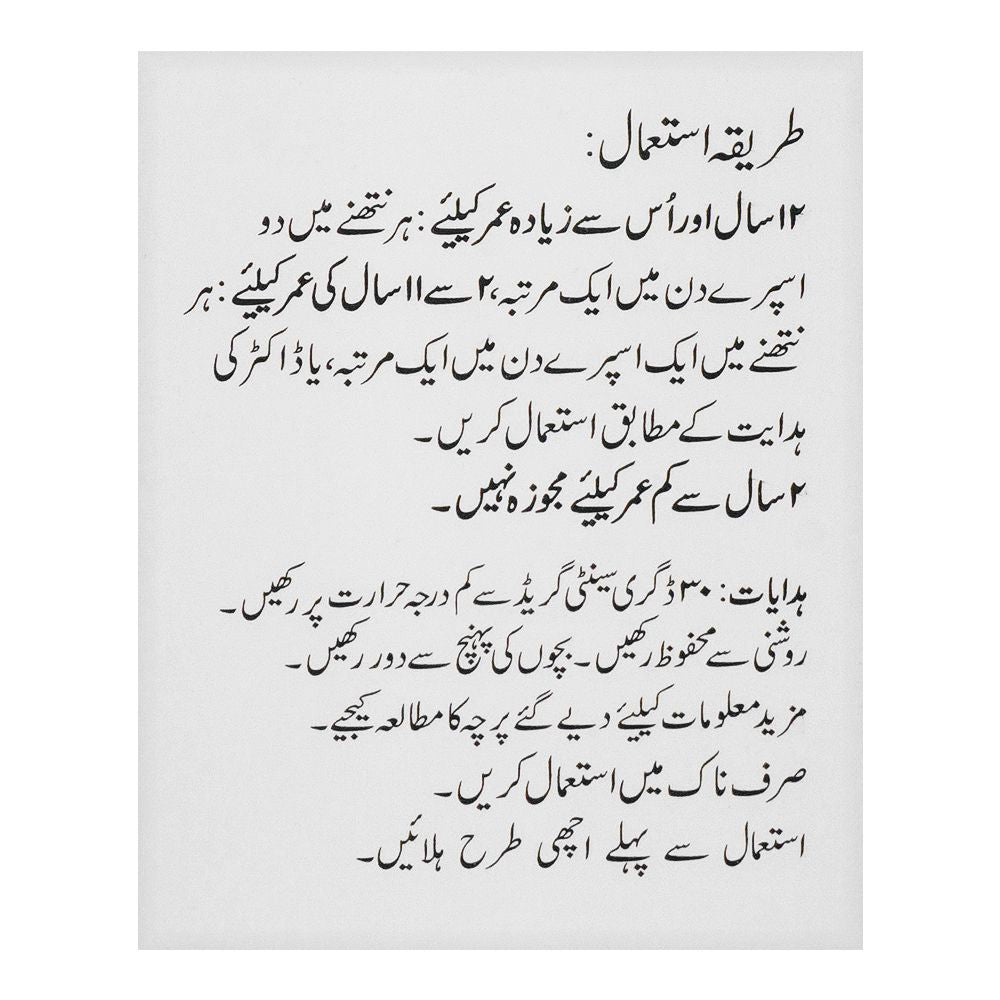 طریقہ استعمال:
۱۲ سال اور اُس سے زیادہ عمر کیلیئے: ہر نتھنے میں دو
اسپرے دن میں ایک مرتبہ، ۲ سے ۱۱ سال کی عمر کیلیئے: ہر
نتھنے میں ایک اسپرے دن میں ایک مرتبہ، یا ڈاکٹر کی
ہدایت کے مطابق استعمال کریں۔
۲ سال سے کم عمر کیلیئے مجوزہ نہیں۔
ہدایات: ۳۰ ڈگری سینٹی گریڈ سے کم درجہ حرارت پر رکھیں۔
روشنی سے محفوظ رکھیں۔ بچوں کی پہنچ سے دور رکھیں۔
مزید معلومات کیلیئے دیے گئے پرچہ کا مطالعہ کیجیے۔
صرف ناک میں استعمال کریں۔
استعمال سے پہلے اچھی طرح ہلائیں۔